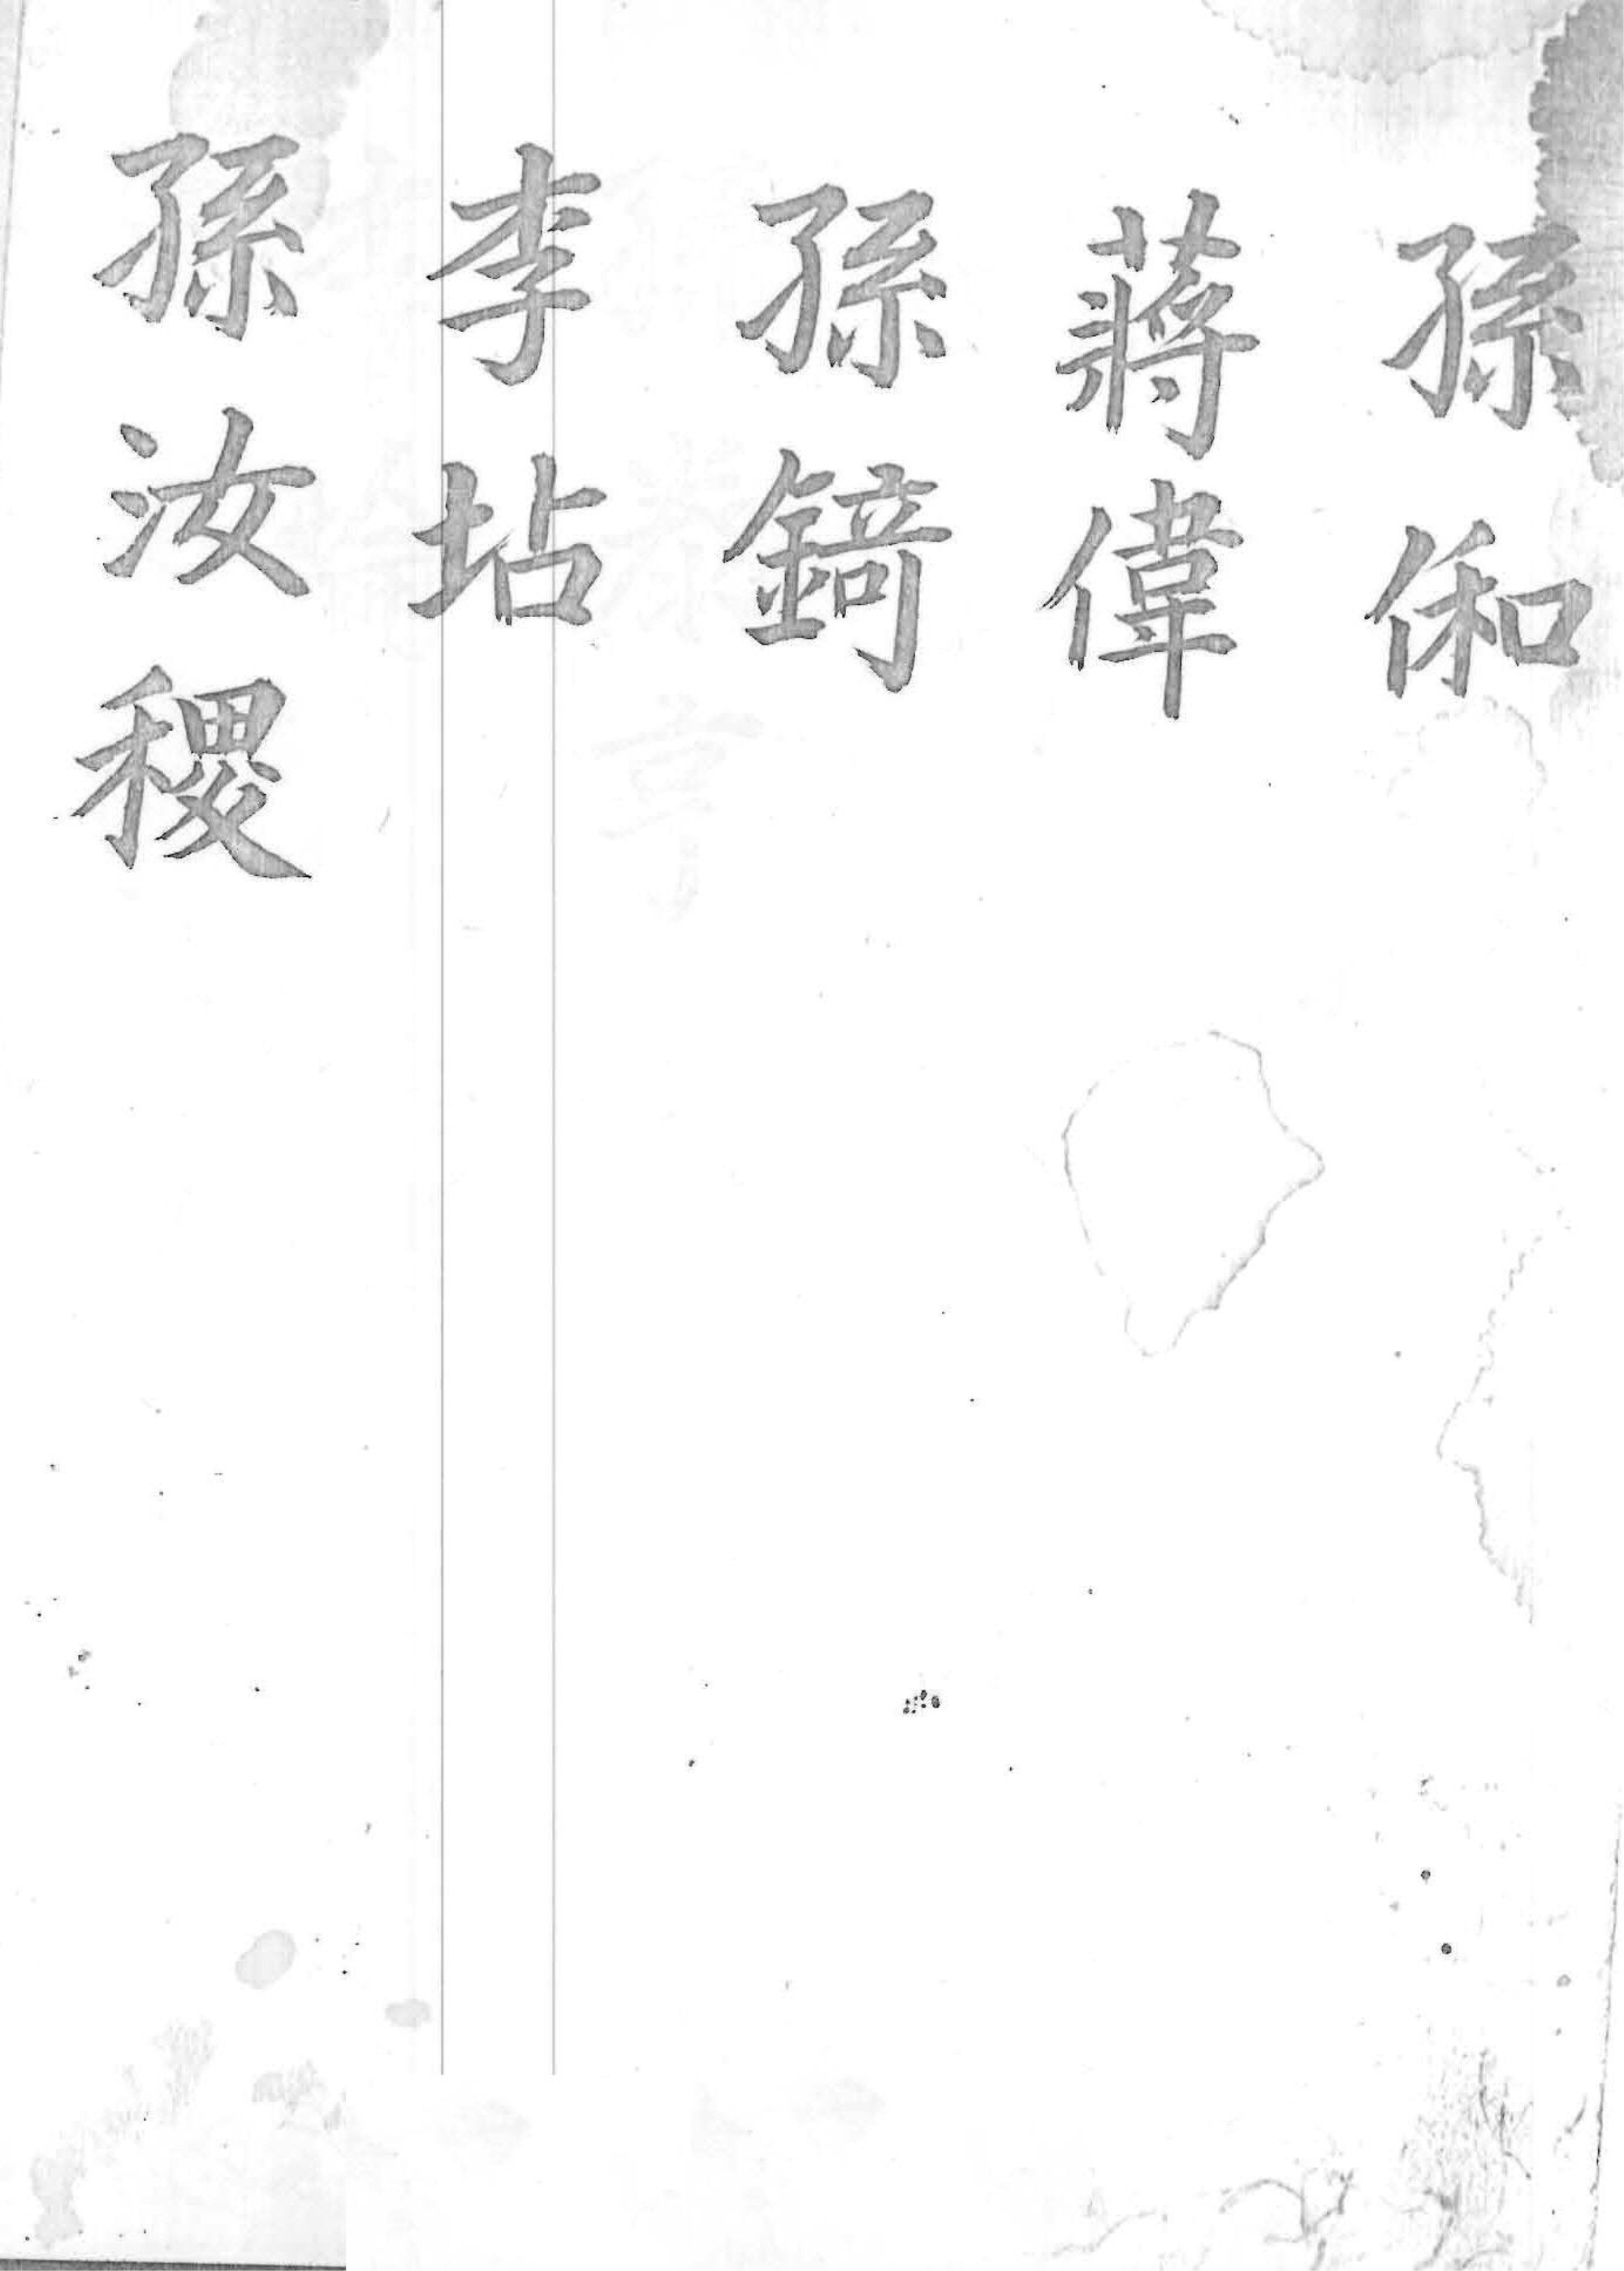 孫俰
蔣偉
孫錡
李坫
孫汝稷